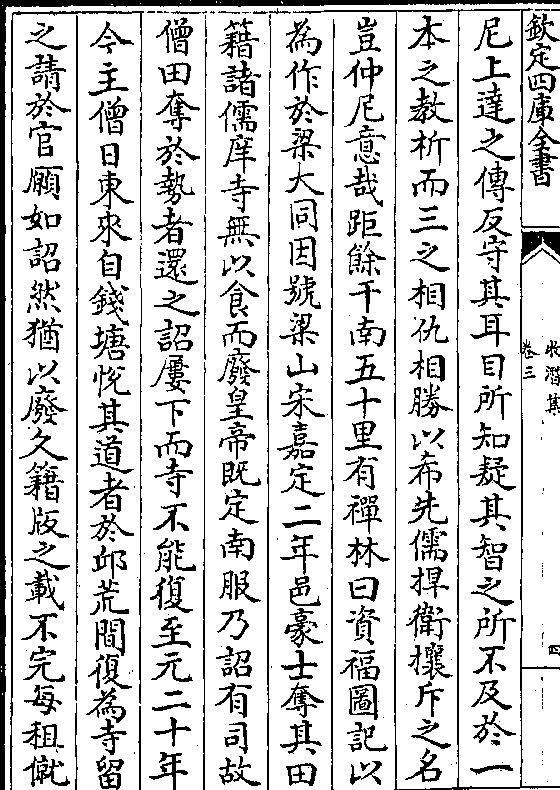 欽定四庫全書
牧潛集
卷三
四
尼上達之傳反守其耳目所知疑其智之所不及於一
本之教析而三之相仇相勝以希先儒捍衛攘斥之名
豈仲尼意哉距餘干南五十里有禪林曰資福圖記以
為作於梁大同因號梁山宋嘉定二年邑豪士奪其田
籍諸儒庠寺無以食而廢皇帝既定南服乃詔有司故
僧田奪於勢者還之詔屢下而寺不能復至元二十年
今主僧日東來自錢塘悅其道者於邱荒間復為寺留
之請於官願如詔然猶以廢久籍版之載不完每租僦